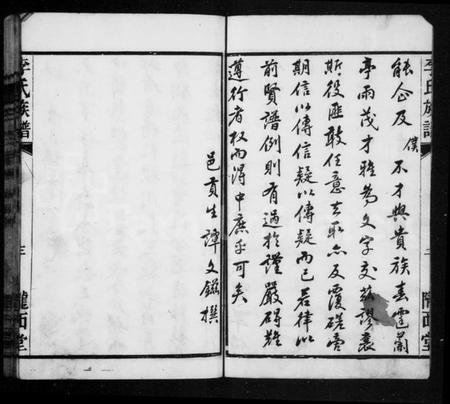 李氏族譜
二
隴西堂
能企及僕不才與貴族春霆蘭
亭雨茂才雅為文字交茲謬襄
斯役匪敢任意去取亦反覆磋
期信以傳信疑以傳疑而已若律以
前賢譜例則有過於謹嚴碍難
遵行者权而得中庶乎可矣
邑貢生譚文鎰撰
李氏族譜
三
隴西堂